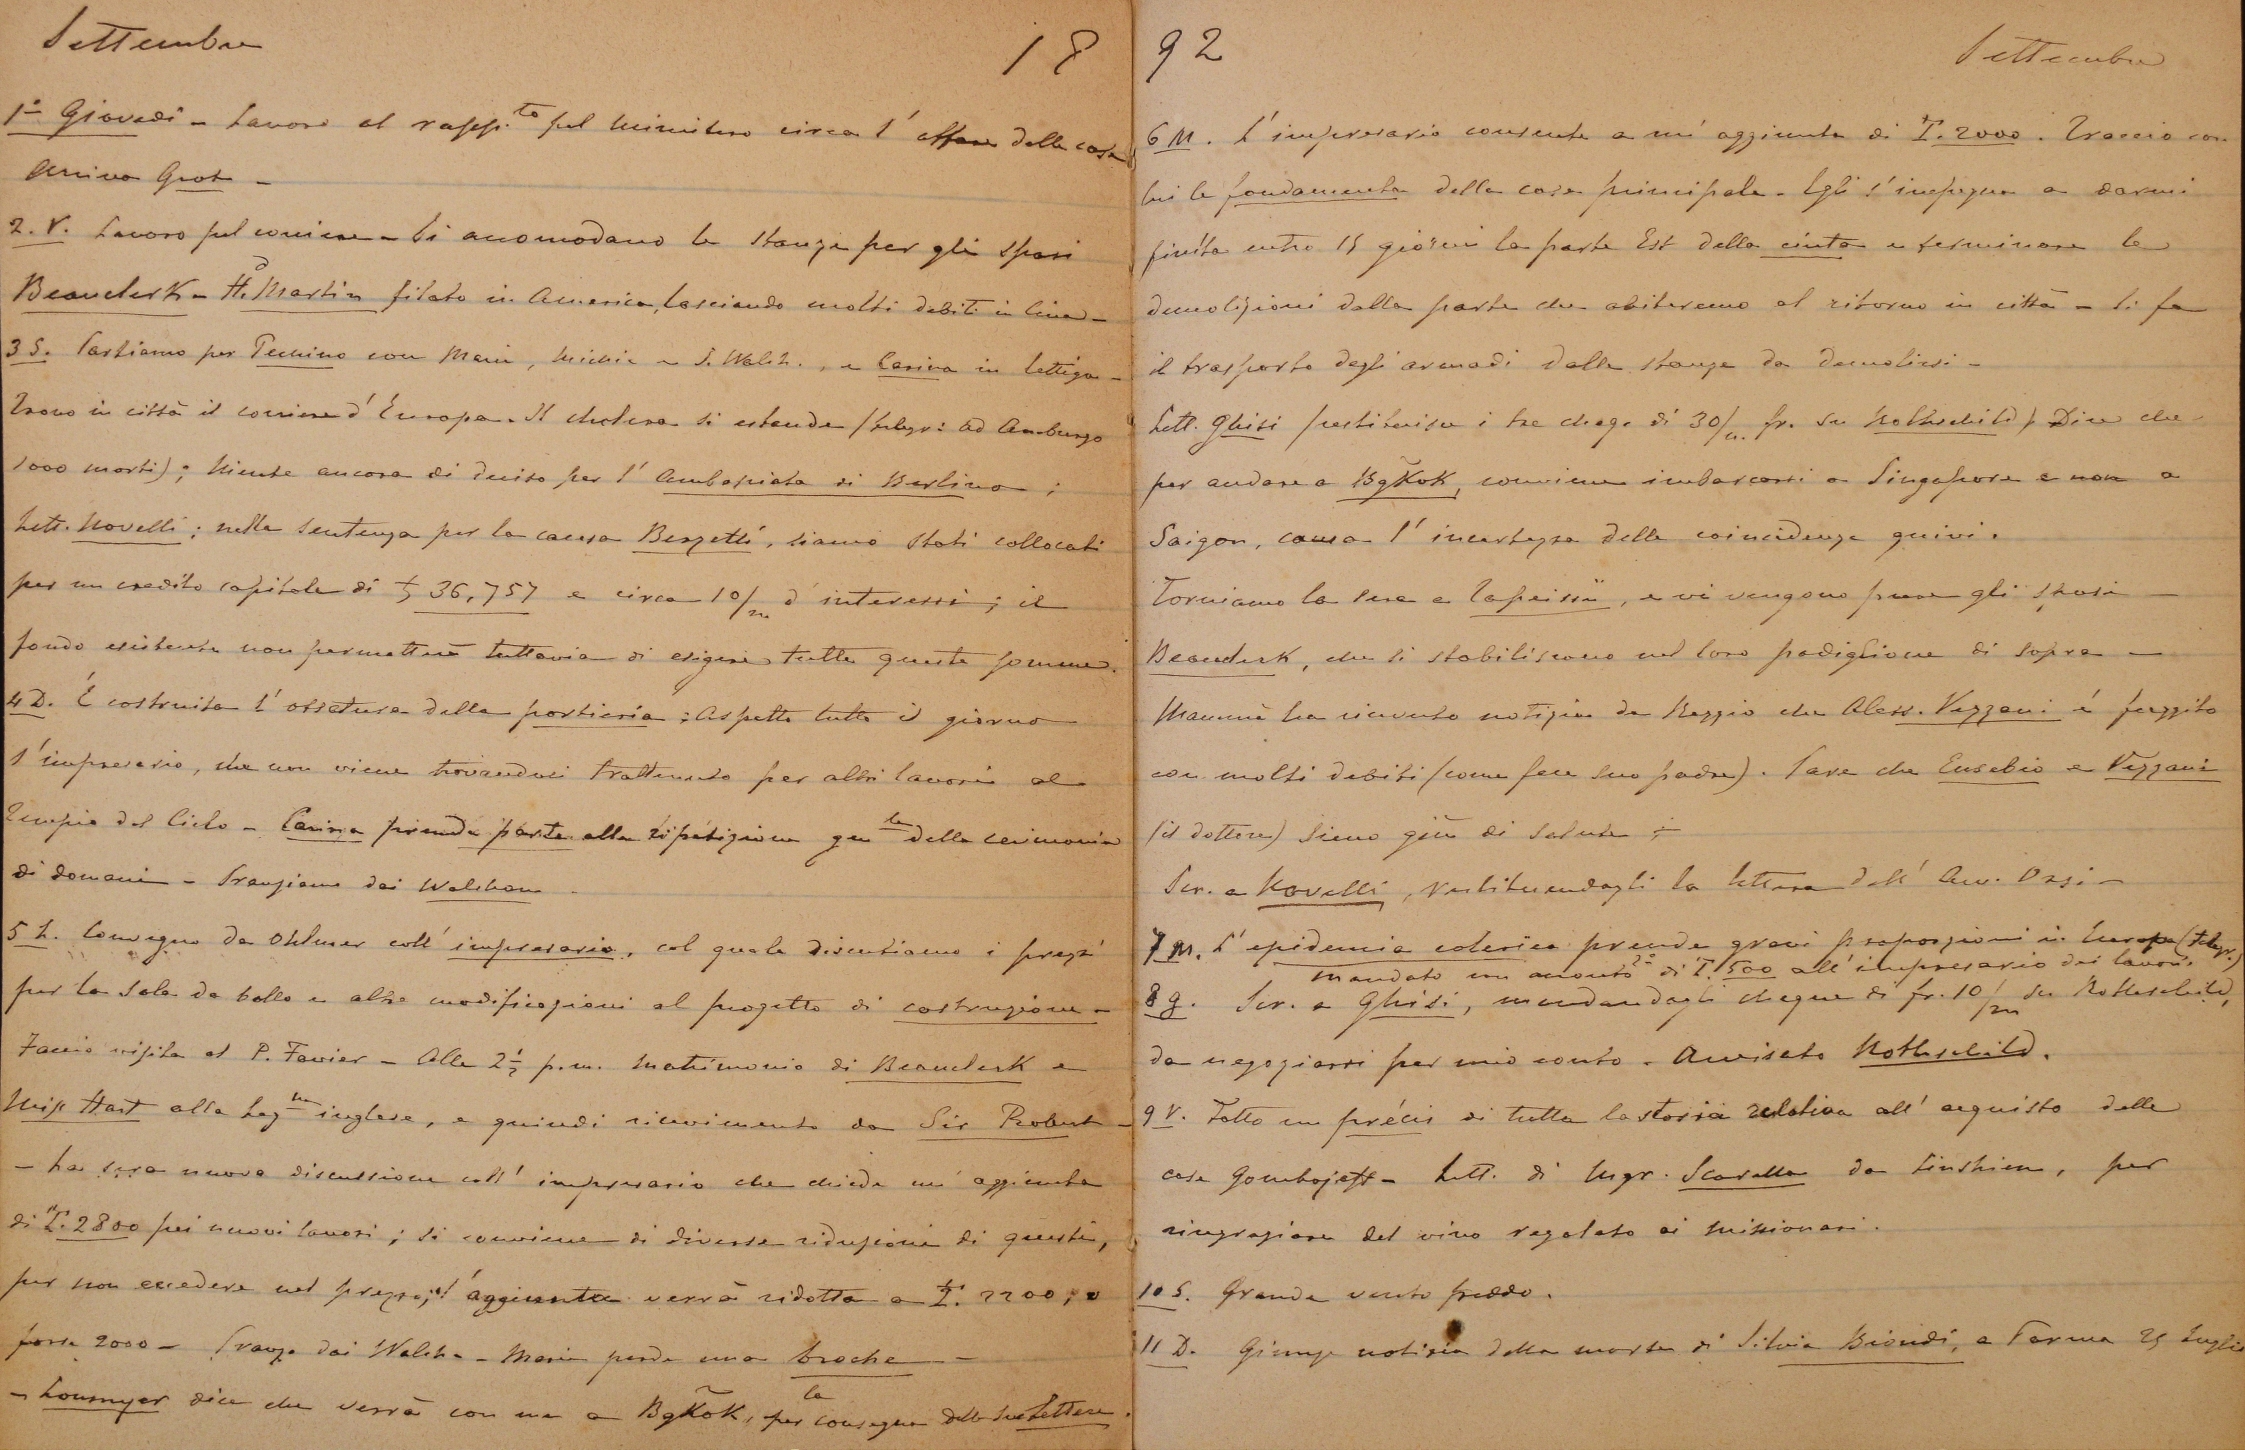 Settembre 18
1º Giovedi - Lavoro al rapp.to pel Ministero circa l'affare della casa
Arrivo Grot -
2. V. Lavoro pel corriere - Si accomodano le stanze per gli sposi
Beauclerk - H. Martin filato in America, lasciando molti debiti in Cina -
3 S. Partiamo per Pechino con Marie, Michie e S. Walsh., e Carina in lettiga -
Trovo in città il corriere d'Europa. Il cholera si estende (telegr: ad Amburgo
1000 morti); Niente ancora di deciso per l'Ambasciata di Berlino;
Lett. Novelli; nella sentenza per la causa Berzetti, siamo stati collocati
per un credito capitale di £ 36,757 e circa 10/m d'interessi; il
fondo esistente non permetterà tuttavia di esigere tutte queste somme.
4 D. È costruita l'ossatura della portieria; Aspetto tutto il giorno
l'impresario, che non viene trovandosi trattenuto per altri lavori al
Tempio del Cielo - Carina prende parte alla ripetizione gen.le della cerimonia
di domani - Pranziamo dai Walsham -
5 L. Convegno da Ohlmer coll'impresario, col quale discutiamo i prezzi
per la sala da ballo e altre modificazioni al progetto di costruzione -
Faccio visita al P. Favier - Alle 2½ p.m. Matrimonio di Beauclerk e
Miss Hart alla Leg.ne inglese, e quindi ricevimento da Sir Robert -
- La sera nuova discussione coll'impresario che chiede un'aggiunta
di T. 2800 pei nuovi lavori; si conviene di diverse riduzioni di questi,
per non eccedere nel prezzo; l'aggiunta verrà ridotta a T. 2200, o
forse 2000 - Pranzo dai Walsh. - Marie perde una broche -
- Loumyer dice che verrà con me a BgKoK, per la consegna delle sue lettere.
92 Settembre
6 M. L'impresario consente a un'aggiunta di T. 2000. Traccio con
lui le fondamenta della casa principale. Egli s'impegna a darmi
finita entro 15 giorni la parte Est della cinta e terminare le
demolizioni dalla parte che abiteremo al ritorno in città - Si fa
il trasporto degli armadi dalle stanze da demolirsi -
Lett. Ghisi (restituisce i tre cheqe di 30/m. fr. su Rothschild) Dice che
per andare a BgKoK, conviene imbarcarsi a Singapore e non a
Saigon, causa l'incertezza delle coincidenze quivi.
Torniamo la sera a Tapeissü, e vi vengono pure gli sposi -
Beauclerk, che si stabiliscono nel loro padiglione di sopra -
Mammà ha ricevuto notizie da Reggio che Aless. Vezzani è fuggito
con molti debiti (come fece suo padre). Pare che Eusebio e Vezzani
(il dottore) sieno giù di salute -
Scr. a Novelli, restituendogli la lettera dell'Avv. Orsi -
7 M. L'epidemia colerica prende gravi proporzioni in Europa (telegr.)
mandato un acconto 2º di T. 500 all'impresario dei lavori.
8 g. Scr. a Ghisi, mandandogli cheque di fr. 10/m su Rothschild,
da negoziarsi per mio conto. Avvisato Rothschild.
9 V. Fatto un précis di tutta la storia relativa all'acquisto delle
case Gombojeff - Lett. di Mgr. Scarella da Linshien, per
ringraziare del vino regalato ai missionari.
10 S. Grande vento freddo.
11 D. Giunge notizia della morte di Silvia Biondi, a Parma 25 luglio